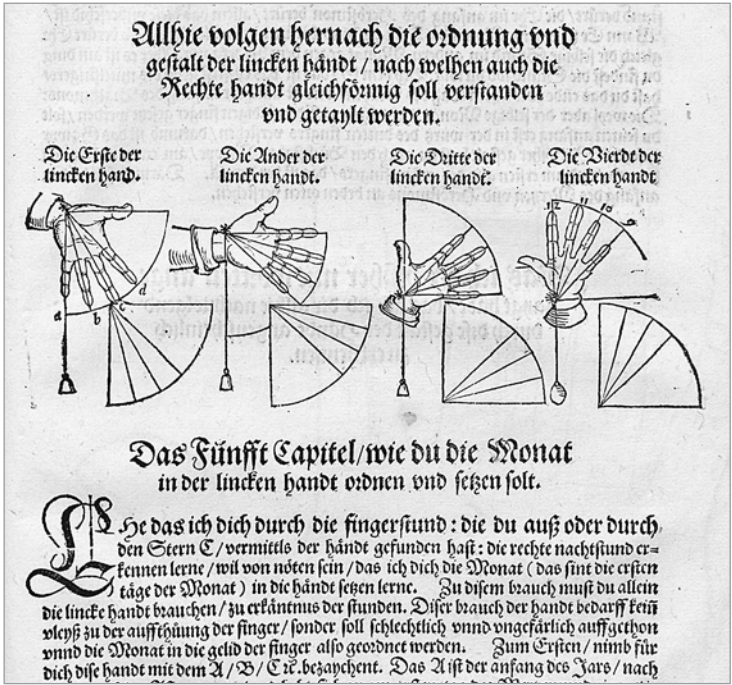 Allhie volgen hernach die ordnung vnd
gestalt der lincken händt / nach welher auch die
Rechte handt gleichförmig soll verstanden
vnd getaylt werden.
Die Erste der
lincken hand.
Die Ander der
lincken handt.
Die Dritte der
lincken handt.
Die Vierdt der
lincken handt
a
b
c
d
12
11
10
9
Das Fünfft Capitel / wie du die Monat
in der lincken handt ordnen vnd setzen solt.
He das ich dich durch die fingerstund : die du auß oder durch
den Stern C / vermittls der händt gefunden hast : die rechte nachtstund er=
kennen lerne / wil von nöten sein / das ich dich die Monat ( das sint die ersten
täge der Monat ) in die händt setzen lerne. Zu disem brauch must du allein
die lincke handt brauchen / zu erkäntnus der stunden. Diser brauch der handt bedarff kein
vleyß zu der auffthüung der finger / sonder soll schlechtlich vnnd vngefärlich auffgethon
vnnd die Monat in die gelid der finger also geordnet werden. Zum Ersten / nimb für
dich dise handt mit dem A / B / C rc. bezaychent. Das A ist der anfang des Jars / nach